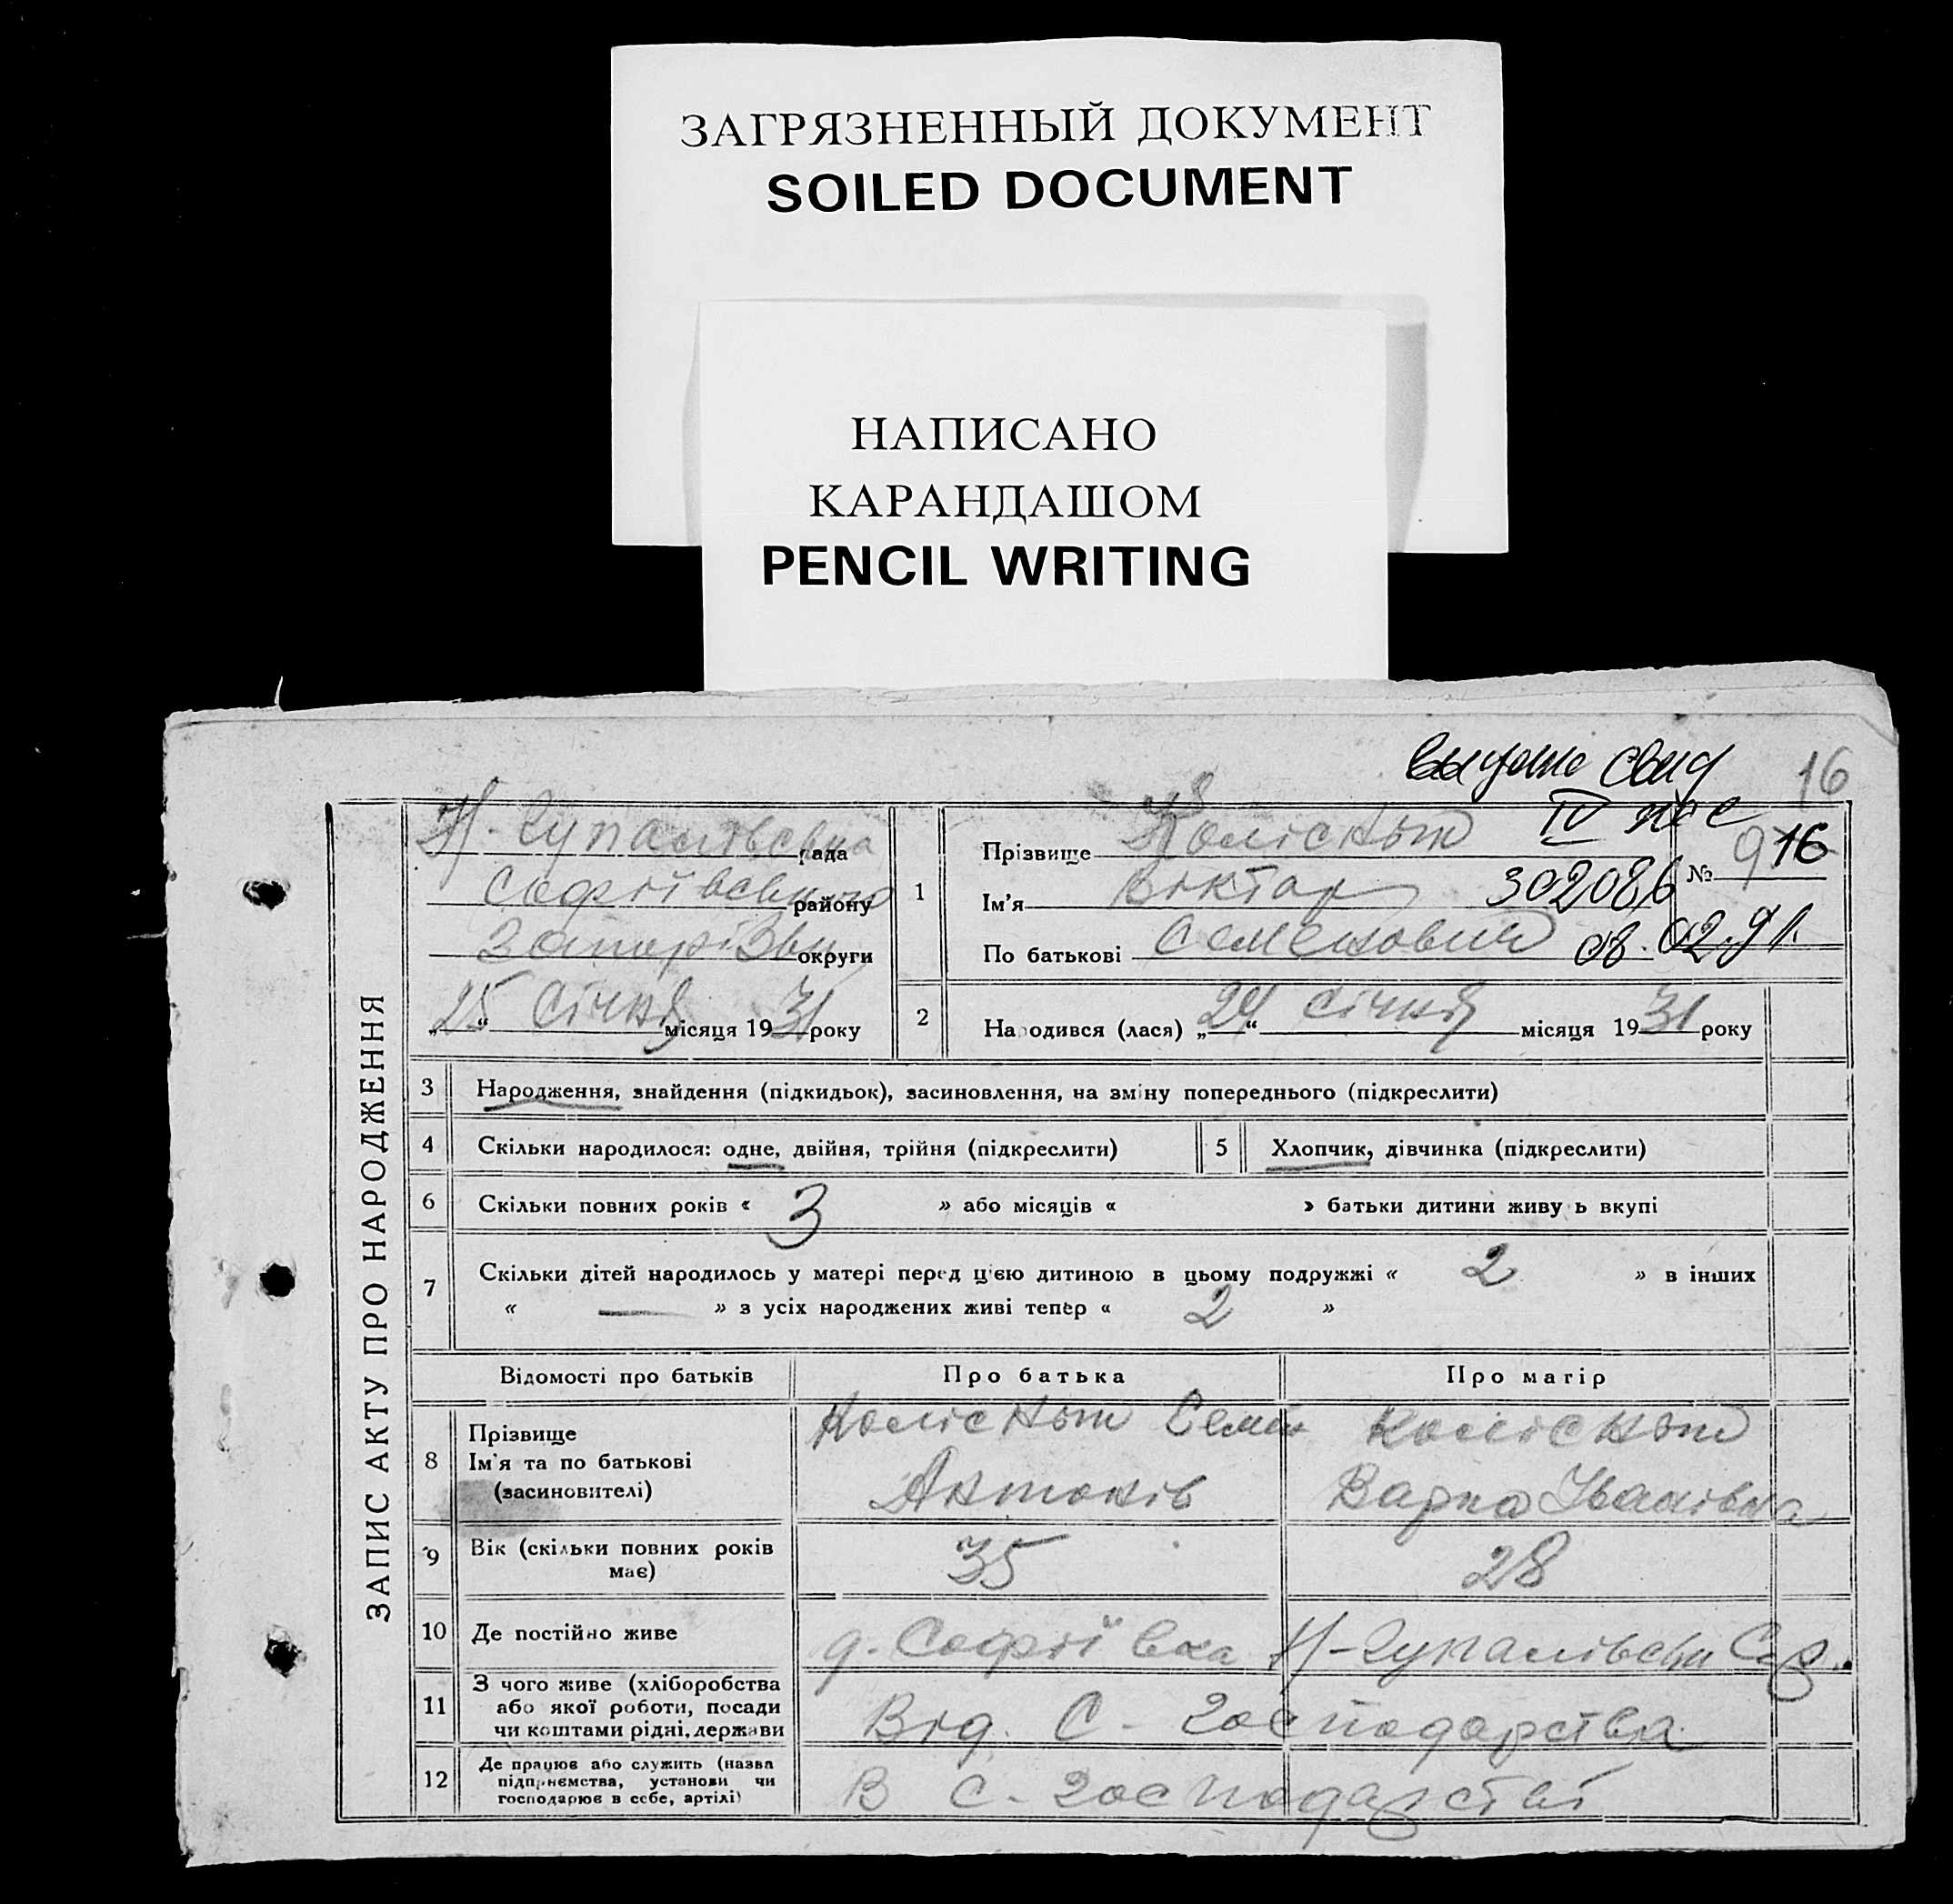 ЗАГРЯЗНЕННЫЙ ДОКУМЕНТ
SOILED DOCUMENT
НАПИСАНО
КАРАНДАШОМ
PENCIL WRITING
выдано свид
16
IV
ЗАПИС АКТУ ПРО НАРОДЖЕННЯ
Н-Гупалівська рада
Софіївського району
Запорізьк округи
„25“ Січня місяця 1931 року
1
Прізвище Коліснык
Ім'я Віктор 302086
По батькові Семенович 08.02.91.
№ 16
2 Народився (лася) „24“ Січня місяця 1931 року
3 Народження, знайдення (підкидьок), засиновлення, на зміну попереднього (підкреслити)
4 Скільки народилося: одне, двійня, трійня (підкреслити) 5 Хлопчик, дівчинка (підкреслити)
6 Скільки повних років « 3 » або місяців « » батьки дитини живу ь вкупі
7 Скільки дітей народилось у матері перед цією дитиною в цьому подружжі « 2 » в інших
« — » з усіх народжених живі тепер « 2 »
Відомості про батьків Про батька Про матір
8 Прізвище
Ім'я та по батькові
(засиновителі)
Коліснык Семен
Антонів
Коліснык
Варка Іванівна
9 Вік (скільки повних років
має) 35 28
10 Де постійно живе д. Софіївка Н-Гупалівськ
11 З чого живе (хліборобства
або якої роботи, посади
чи коштами рідні, держави
Від. С- господарства
12 Де працює або служить (назва
підприємства, установи чи
господарює в себе, артілі)
В С- господарстві